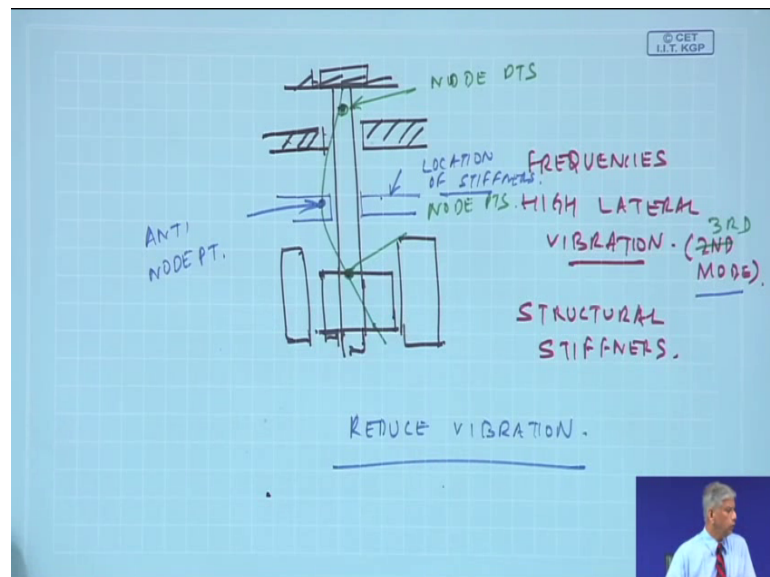 © CET
I.I.T. KGP
NODE PTS
LOCATION
OF STIFFNERS.
NODE PTS.
ANTI
NODE PT.
FREQUENCIES
HIGH LATERAL
VIBRATION. (2ND 3RD
MODE).
STRUCTURAL
STIFFNERS.
REDUCE VIBRATION.